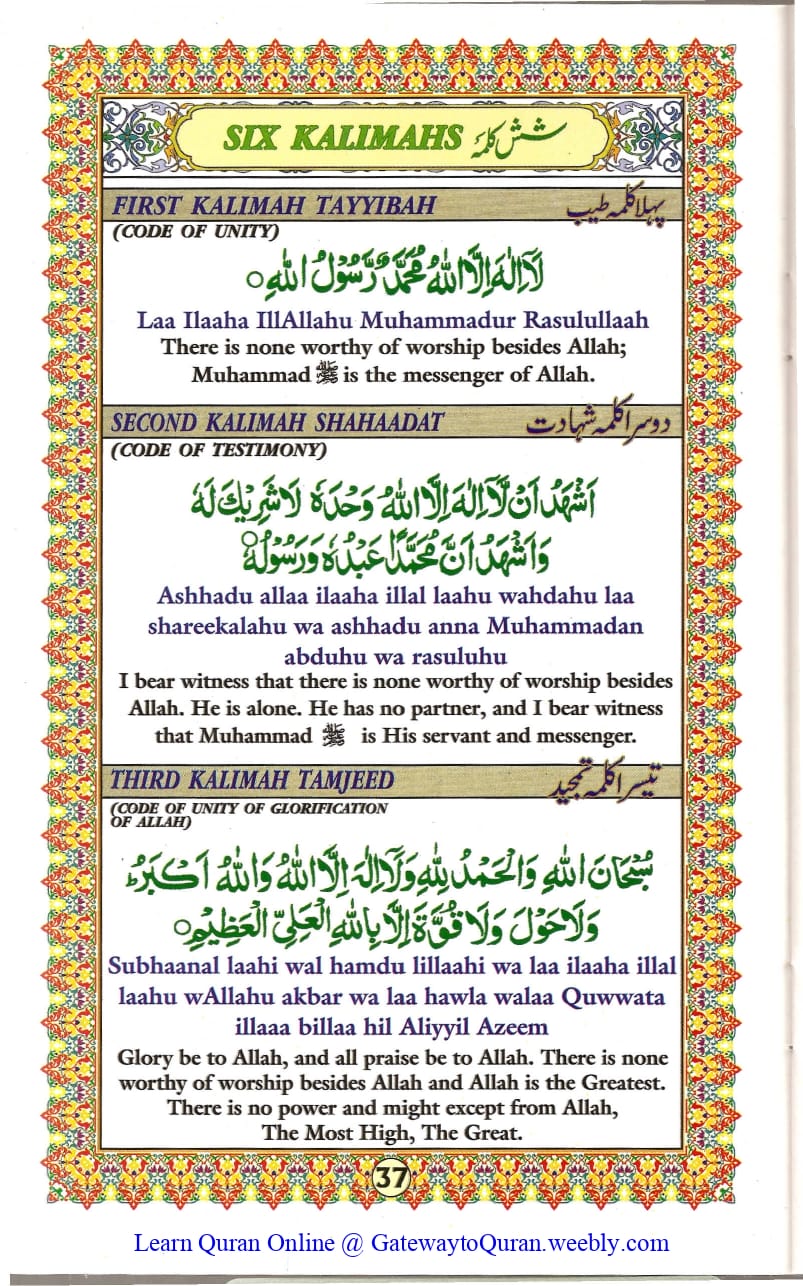 SIX KALIMAHS شش کلمۂ
FIRST KALIMAH TAYYIBAH پہلا کلمہ طیب
(CODE OF UNITY)
لَاۤ اِلٰهَ اِلَّا اللهُ مُحَمَّدٌ رَّسُوْلُ اللهِ○
Laa Ilaaha IllAllahu Muhammadur Rasulullaah
There is none worthy of worship besides Allah;
Muhammad ﷺ is the messenger of Allah.
SECOND KALIMAH SHAHAADAT دوسرا کلمہ شہادت
(CODE OF TESTIMONY)
اَشْهَدُ اَنْ لَّاۤ اِلٰهَ اِلَّا اللهُ وَحْدَهٗ لَا شَرِيْكَ لَهٗ
وَاَشْهَدُ اَنَّ مُحَمَّدًا عَبْدُهٗ وَرَسُوْلُهٗ○
Ashhadu allaa ilaaha illal laahu wahdahu laa
shareekalahu wa ashhadu anna Muhammadan
abduhu wa rasuluhu
I bear witness that there is none worthy of worship besides
Allah. He is alone. He has no partner, and I bear witness
that Muhammad ﷺ is His servant and messenger.
THIRD KALIMAH TAMJEED تیسرا کلمہ تمجید
(CODE OF UNITY OF GLORIFICATION
OF ALLAH)
سُبْحَانَ اللهِ وَالْحَمْدُ لِلّٰهِ وَلَاۤ اِلٰهَ اِلَّا اللهُ وَاللهُ اَكْبَرُؕ
وَلَا حَوْلَ وَلَا قُوَّةَ اِلَّا بِاللهِ الْعَلِيِّ الْعَظِيْمِ○
Subhaanal laahi wal hamdu lillaahi wa laa ilaaha illal
laahu wAllahu akbar wa laa hawla walaa Quwwata
illaaa billaa hil Aliyyil Azeem
Glory be to Allah, and all praise be to Allah. There is none
worthy of worship besides Allah and Allah is the Greatest.
There is no power and might except from Allah,
The Most High, The Great.
37
Learn Quran Online @ GatewaytoQuran.weebly.com